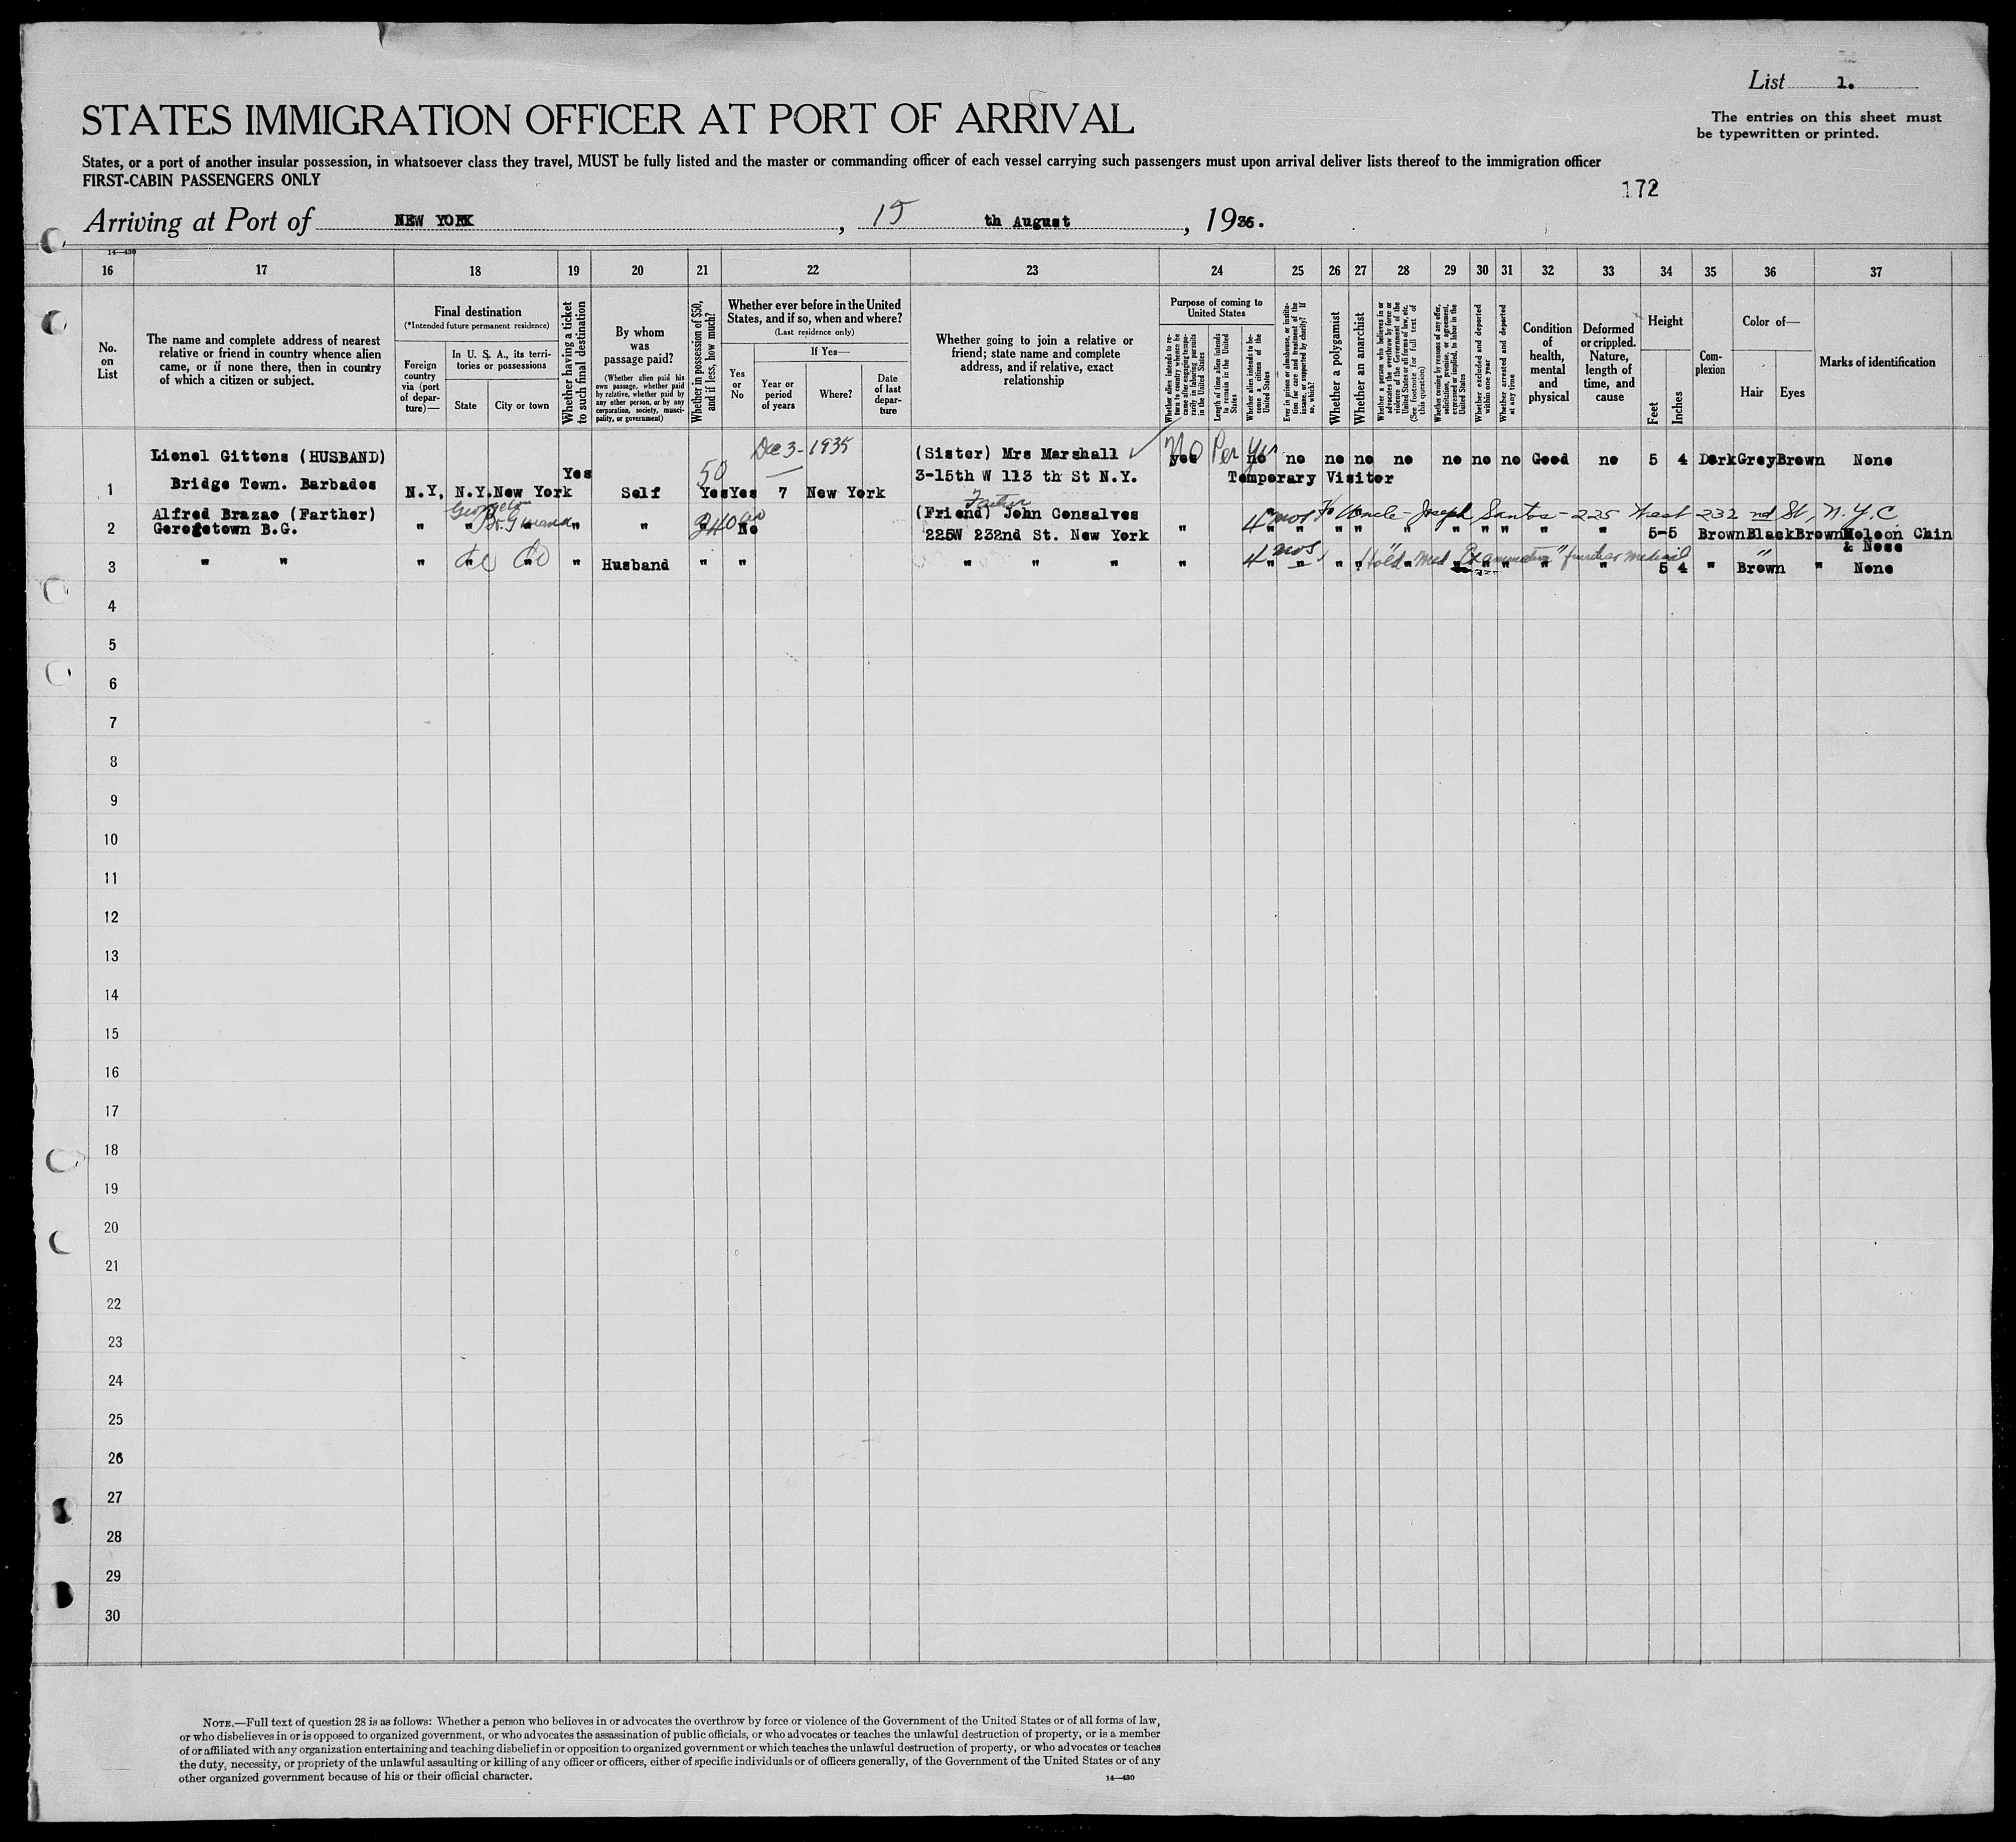 List 1.
STATES IMMIGRATION OFFICER AT PORT OF ARRIVAL
The entries on this sheet must
be typewritten or printed.
States, or a port of another insular possession, in whatsoever class they travel, MUST be fully listed and the master or commanding officer of each vessel carrying such passengers must upon arrival deliver lists thereof to the immigration officer
FIRST-CABIN PASSENGERS ONLY
172
Arriving at Port of NEW YORK, 15 th August, 1936.
14—430
16 17 18 19 20 21 22 23 24 25 26 27 28 29 30 31 32 33 34 35 36 37
No. on List
The name and complete address of nearest
relative or friend in country whence alien
came, or if none there, then in country
of which a citizen or subject.
Final destination
(*Intended future permanent residence)
Foreign country via (port of departure)—
In U. S. A., its territories or possessions
State
City or town
Whether having a ticket to such final destination
By whom was passage paid?
(Whether alien paid his own passage, whether paid by relative, whether paid by any other person, or by any corporation, society, municipality, or government)
Whether in possession of $50, and if less, how much?
Whether ever before in the United
States, and if so, when and where?
(Last residence only)
Yes or No
If Yes—
Year or period of years
Where?
Date of last departure
Whether going to join a relative or
friend; state name and complete
address, and if relative, exact
relationship
Purpose of coming to United States
Whether alien intends to return to country whence he came after engaging temporarily in laboring pursuits in the United States
Length of time alien intends to remain in the United States
Whether alien intends to become a citizen of the United States
Ever in prison or almshouse, or institution for care and treatment of the insane, or supported by charity? If so, which?
Whether a polygamist
Whether an anarchist
Whether a person who believes in or advocates the overthrow by force or violence of the Government of the United States or all forms of law, etc. (See footnote for full text of this question)
Whether coming by reasons of any offer, solicitation, promise, or agreement, expressed or implied, to labor in the United States
Whether excluded and deported within one year
Whether arrested and deported at any time
Condition of health, mental and physical
Deformed or crippled. Nature, length of time, and cause
Height
Feet
Inches
Complexion
Color of—
Hair
Eyes
Marks of identification
Dec 3 - 1935
Lionel Gittens (HUSBAND) (Sister) Mrs Marshall No Per Yes
yes no no no no no no no no Good no 5 4 Dark Grey Brown None
Yes 50
Bridge Town. Barbados 3-15th W 113 th St N.Y. Temporary Visitor
1 N.Y, N.Y. New York Self Yes Yes 7 New York
Alfred Brazao (Farther) Georgetown (Friend) John Gonsalves 4 mos To Uncle - Joseph Santos - 225 West 232 nd St, N.Y.C.
2 Geregetown B.G. " " " " " 240 No 225W 232nd St. New York " " " " " " " " " " " 5-5 Brown Black Brown Mole on Chin
& Nose
3 " " " do do " Husband " " " " " " 4 mos " " " Held Med Examination " " 5 4 " Brown " None
4
5
6
7
8
9
10
11
12
13
14
15
16
17
18
19
20
21
22
23
24
25
26
27
28
29
30
NOTE.—Full text of question 28 is as follows: Whether a person who believes in or advocates the overthrow by force or violence of the Government of the United States or of all forms of law,
or who disbelieves in or is opposed to organized government, or who advocates the assassination of public officials, or who advocates or teaches the unlawful destruction of property, or is a member
of or affiliated with any organization entertaining and teaching disbelief in or opposition to organized government or which teaches the unlawful destruction of property, or who advocates or teaches
the duty, necessity, or propriety of the unlawful assaulting or killing of any officer or officers, either of specific individuals or of officers generally, of the Government of the United States or of any
other organized government because of his or their official character.
14—430